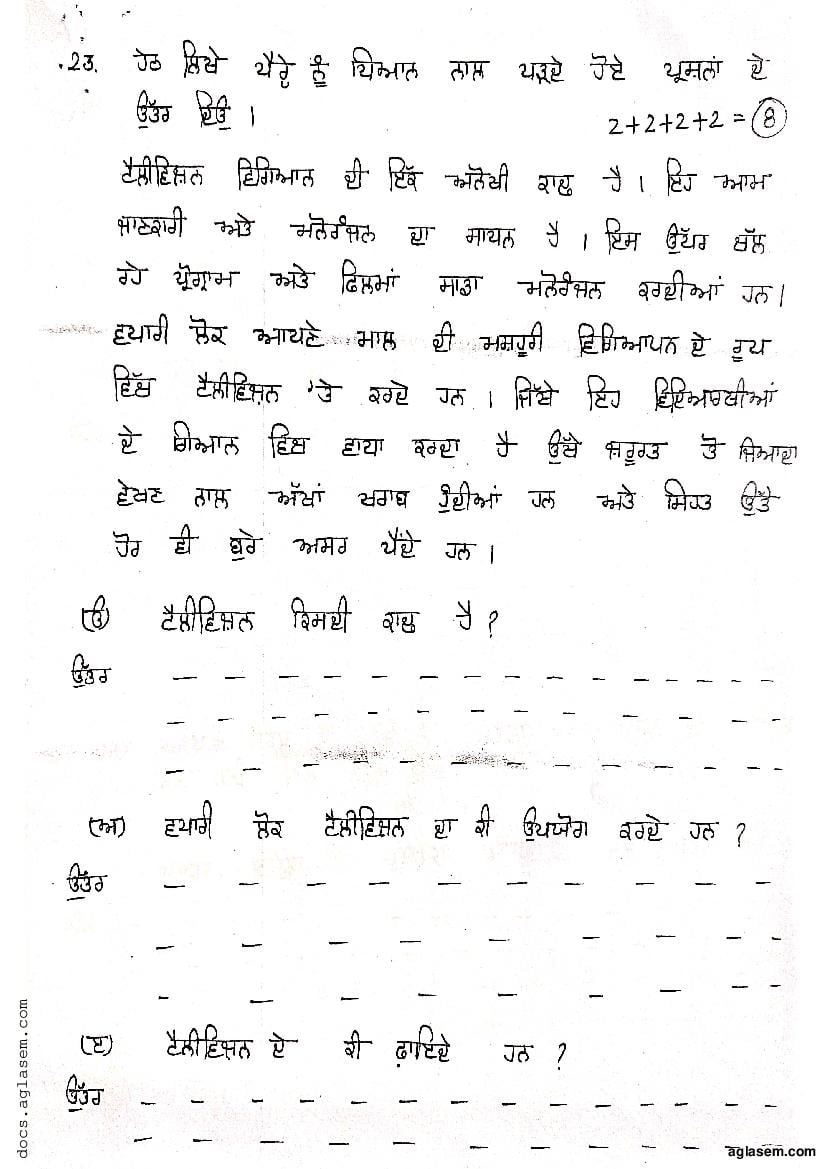 .23. ਹੇਠ ਲਿਖੇ ਪੈਰ੍ਹੇ ਨੂੰ ਧਿਆਨ ਨਾਲ ਪੜ੍ਹਦੇ ਹੋਏ ਪ੍ਰਸ਼ਨਾਂ ਦੇ
ਉੱਤਰ ਦਿਓ ।
2+2+2+2 = 8
ਟੈਲੀਵਿਜ਼ਨ ਵਿਗਿਆਨ ਦੀ ਇੱਕ ਅਨੋਖੀ ਕਾਢ ਹੈ । ਇਹ ਆਮ
ਜਾਣਕਾਰੀ ਅਤੇ ਮਨੋਰੰਜਨ ਦਾ ਸਾਧਨ ਹੈ । ਇਸ ਉੱਪਰ ਚੱਲ
ਰਹੇ ਪ੍ਰੋਗ੍ਰਾਮ ਅਤੇ ਫਿਲਮਾਂ ਸਾਡਾ ਮਨੋਰੰਜਨ ਕਰਦੀਆਂ ਹਨ ।
ਵਪਾਰੀ ਲੋਕ ਆਪਣੇ ਮਾਲ ਦੀ ਮਸ਼ਹੂਰੀ ਵਿਗਿਆਪਨ ਦੇ ਰੂਪ
ਵਿੱਚ ਟੈਲੀਵਿਜ਼ਨ 'ਤੇ ਕਰਦੇ ਹਨ । ਜਿੱਥੇ ਇਹ ਵਿਦਿਆਰਥੀਆਂ
ਦੇ ਗਿਆਨ ਵਿਚ ਵਾਧਾ ਕਰਦਾ ਹੈ ਉੱਥੇ ਜਰੂਰਤ ਤੋਂ ਜਿਆਦਾ
ਵੇਖਣ ਨਾਲ ਅੱਖਾਂ ਖਰਾਬ ਹੁੰਦੀਆਂ ਹਨ ਅਤੇ ਸਿਹਤ ਉੱਤੇ
ਹੋਰ ਵੀ ਬੁਰੇ ਅਸਰ ਪੈਂਦੇ ਹਨ ।
(ੳ) ਟੈਲੀਵਿਜ਼ਨ ਕਿਸਦੀ ਕਾਢ ਹੈ ?
ਉੱਤਰ
(ਅ) ਵਪਾਰੀ ਲੋਕ ਟੈਲੀਵਿਜ਼ਨ ਦਾ ਕੀ ਉਪਯੋਗ ਕਰਦੇ ਹਨ ?
ਉੱਤਰ
(ੲ) ਟੈਲੀਵਿਜ਼ਨ ਦੇ ਕੀ ਫ਼ਾਇਦੇ ਹਨ ?
ਉੱਤਰ
docs.aglasem.com
aglasem.com